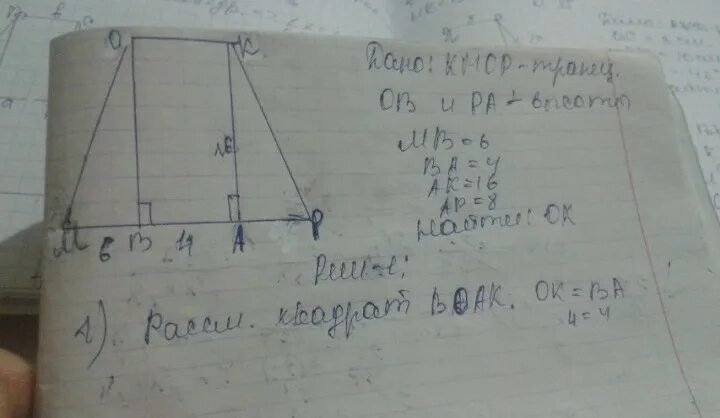 O K
Дано: КМОР-трапец.
OB и PA - высоты
16
MB=6
BA=4
AK=16
AP=8
Найти: OK
M 6 B 4 A P
Решение:
1) Рассм. квадрат BOAK. OK=BA
4=4